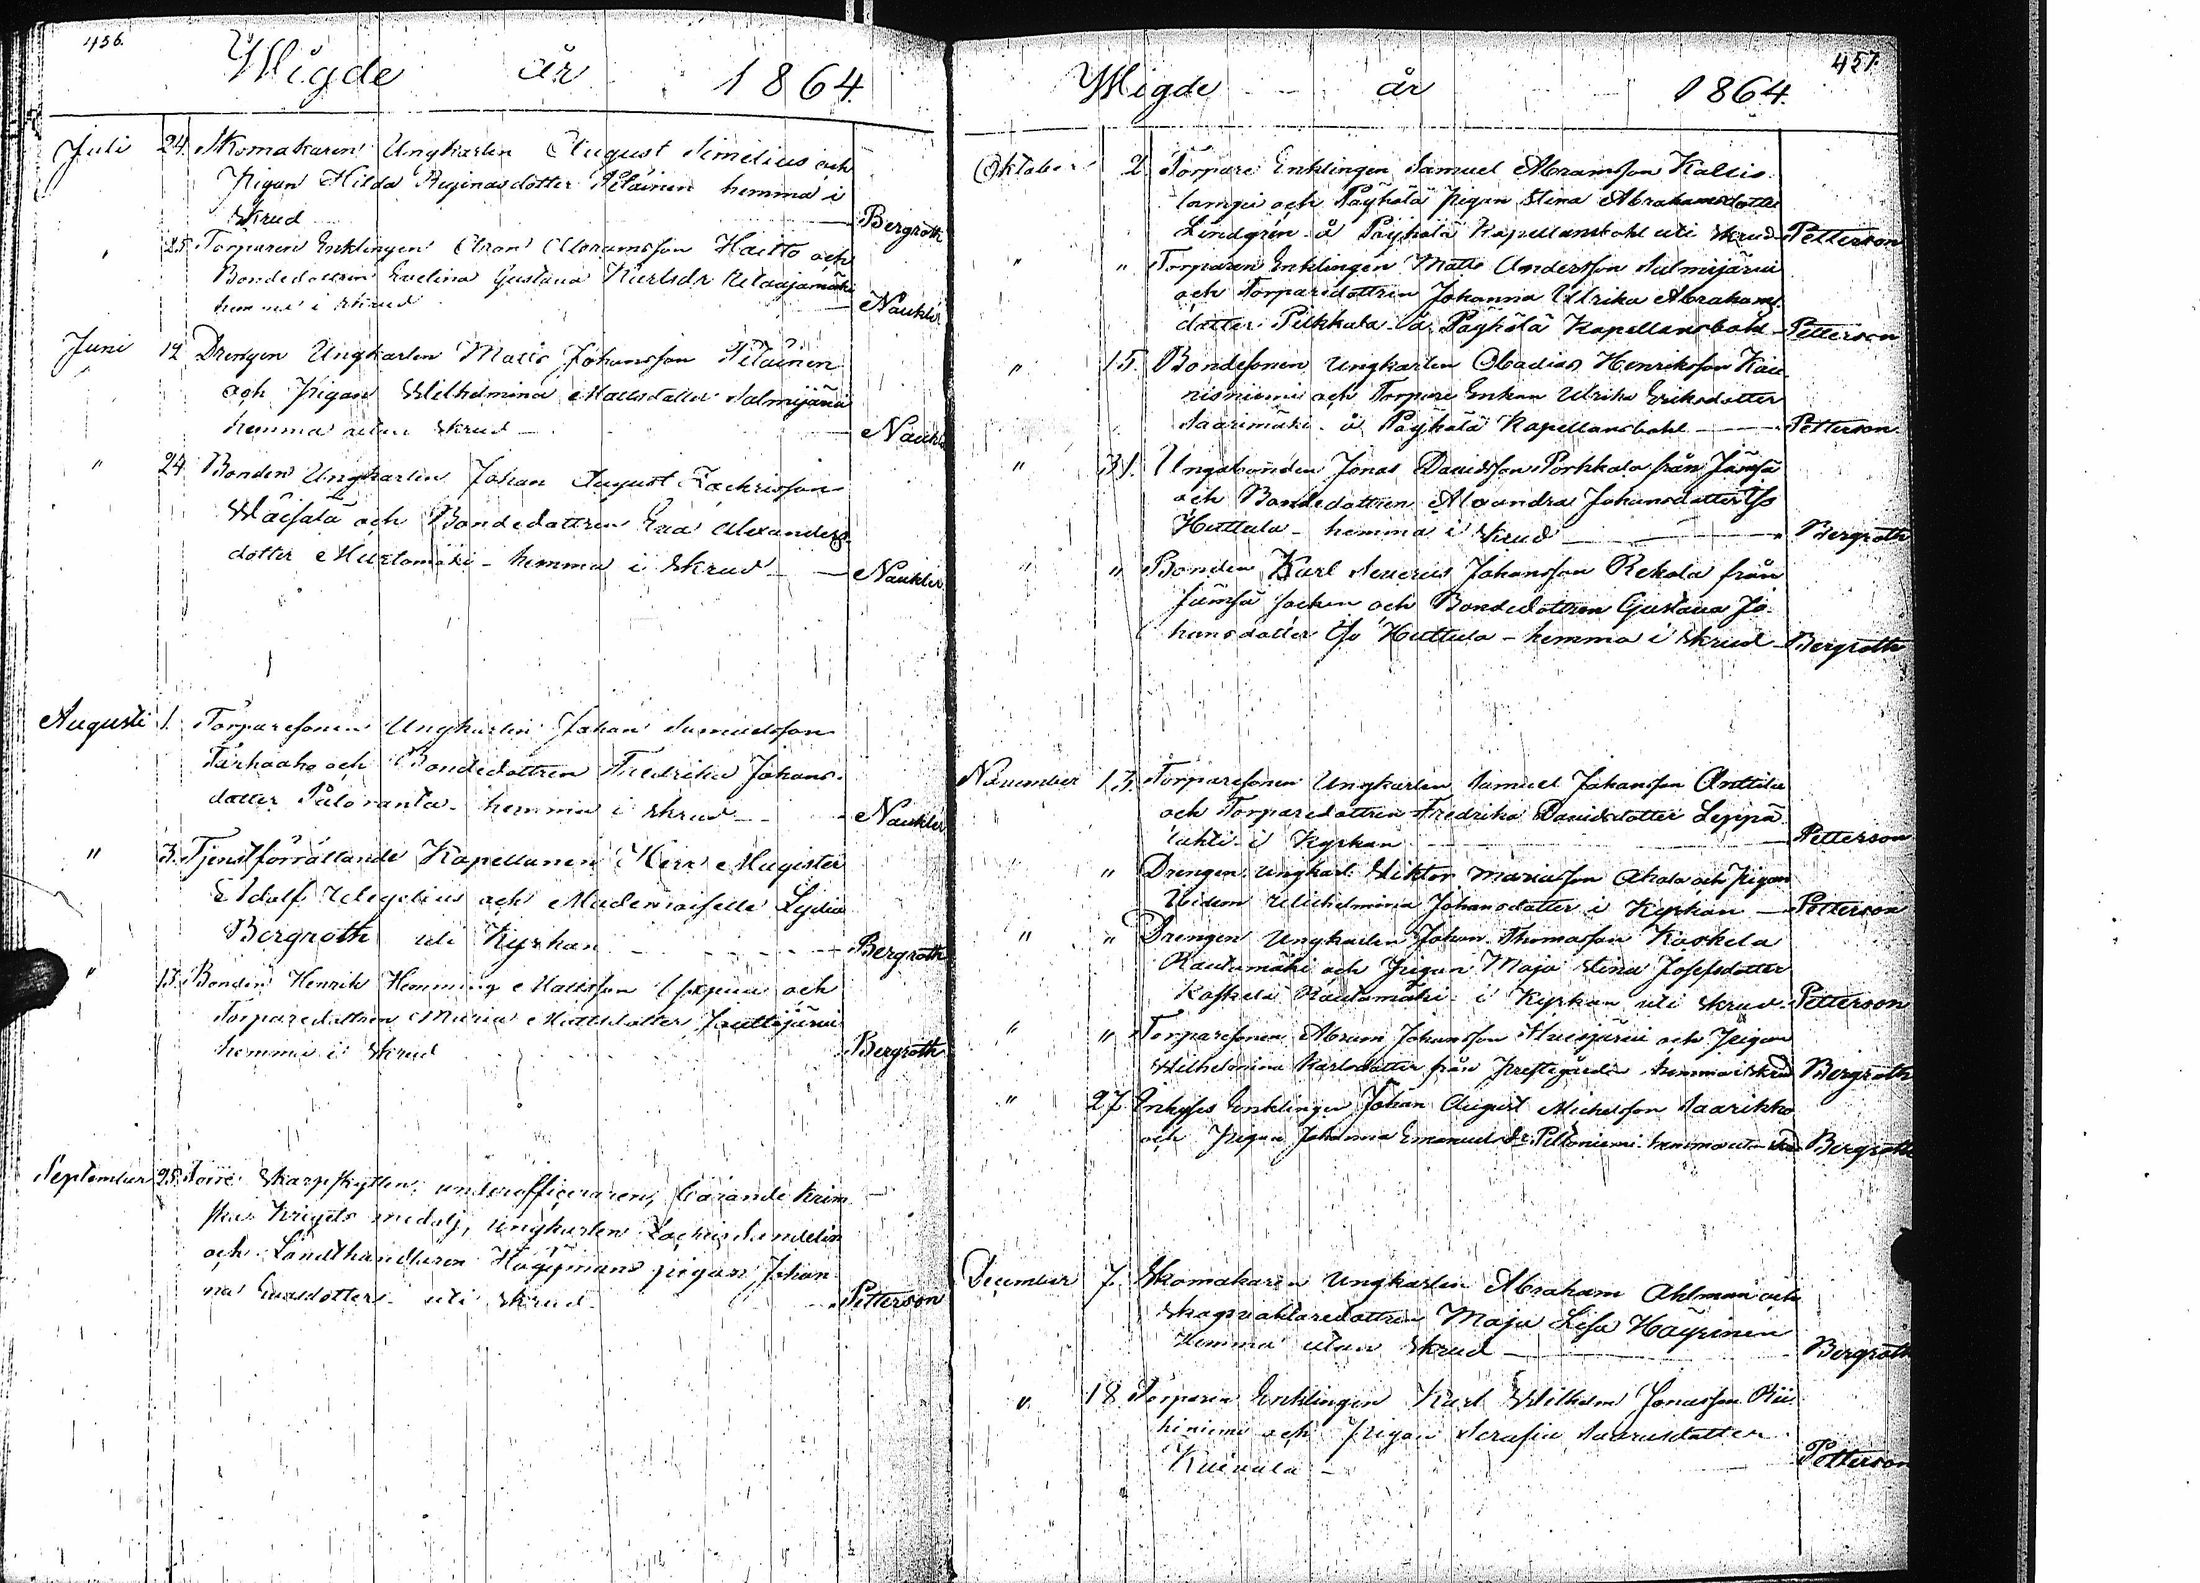 456.
Wigde år 1864.
Juli 24. Skomakaren Ungkarlen August Simelius och
Pigan Hilda Reginasdotter Piläinen hemma i
Skrud Bergroth
" 25 Torparen Enklingen Aron Abramsson Haitto och
Bondedottren Evelina Gustava
hemma i skrud Naukler
Juni 12 Drengen Ungkarlen Matts Johansson Piläinen
och Pigan Wilhelmina Mattsdotter Salmijärvi
hemma utan skrud Naukler
" 24 Bonden Ungkarlen Johan August Zachrisson
Wäisälä och Bondedottren Eva Alexanders-
dotter Murtomäki - hemma i skrud Naukler
Augusti 1. Torparesonen Ungkarlen Johan Samuelsson
och Bondedottren Fredrika Johans-
dotter Paloranta - hemma i skrud Naukler
" 3. Tjenstförrättande Kapellanen Herr Magister
Adolf Wegelius och Mademoiselle Lydia
Bergroth uti Kyrkan Bergroth
" 13. Bonden Henrik Hemming Mattsson och
Torparedottren Maria Mattsdotter
hemma i skrud Bergroth
September 25. Skarpskytten, underofficeraren, bärande Krim-
ska Krigets medalj, Ungkarlen Zachris Sandelin
och Landthandlaren Häggmans pigan Johan-
na Evasdotter - uti skrud Petterson
457.
Wigde år 1864.
Oktober 2. Torpare Enklingen Samuel Abramsson Kallio-
lampi och Päykälä pigan Stina Abrahamsdotter
Lindgrén - å Päykälä Kapellansbohl uti skrud Petterson
" " Torparen Enklingen Matts Andersson Salmijärvi
och Torparedottren Johanna Ulrika Abrahams-
dotter Pilkkala - å Päykälä Kapellansbohl - Petterson
" 15. Bondesonen Ungkarlen Obadias Henriksson Kau-
nisniemi och Torpare Enkan Ulrika Eriksdotter
Saarimäki - å Päykälä Kapellansbohl Petterson
" 31. Ungabonden Jonas Davidsson Porkkala från Jämsä
och Bondedottren Alexandra Johansdotter Yso
Huttula - hemma i skrud Bergroth
" " Bonden Karl Severus Johansson Rekola från
Jämsä socken och Bondedottren Gustava Jo-
hansdotter Yso Huttula - hemma i skrud Bergroth
November 13. Torparesonen Ungkarlen Samuel Johansson Anttila
och Torparedottren Fredrika Davidsdotter Leppä-
lahti - i Kyrkan Petterson
" " Drengen Ungkarl. Viktor Mariasson Ahola och Pigan
Wilhelmina Johansdotter i Kyrkan Petterson
" " Drengen Ungkarlen Johan Thomasson Koskela
Rautamäki och Pigan Maja Stina Josefsdotter
Koskela Rautamäki - i Kyrkan uti skrud Petterson
" " Torparesonen Abram Johansson och Pigan
Wilhelmina Karlsdotter från Prestgården hemma i skrud Bergroth
" 27 Inhyses Enklingen Johan August Michelsson Saarikko
och Pigan Johanna Emanuelsdr. Peltoniemi - hemma utan skrud Bergroth
December 7. Skomakaren Ungkarlen Abraham Ahlman och
Skogsvaktaredottren Maja Lisa Häyrinen
Hemma utan skrud Bergroth
" 18 Torparen Enklingen Karl Wilhelm Jonasson Rii-
hiniemi och Pigan Serafia
Kuivala - Petterson